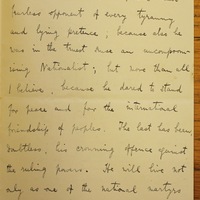 fearless opponent of every tyranny
and lying pretence, because also he
was in the truest sense an uncomprom-
ising Nationalist; but more than all
I believe, because he dared to stand
for peace and for the international
friendship of peoples. The last has been
doubtless, his crowning offence against
the ruling powers. He will live not
only as one of the national martyrs